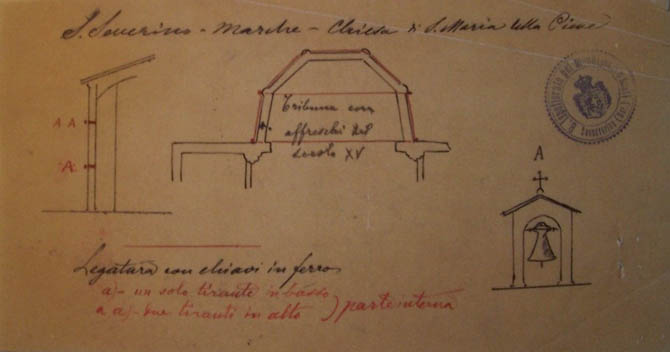 S. Severino - Marche - Chiesa di S. Maria della Pieve
A A
A
Tribuna con
affreschi del
secolo XV
A
Legatura con chiavi in ferro
a) - un solo tirante in basso
a a) - due tiranti in alto
parte interna